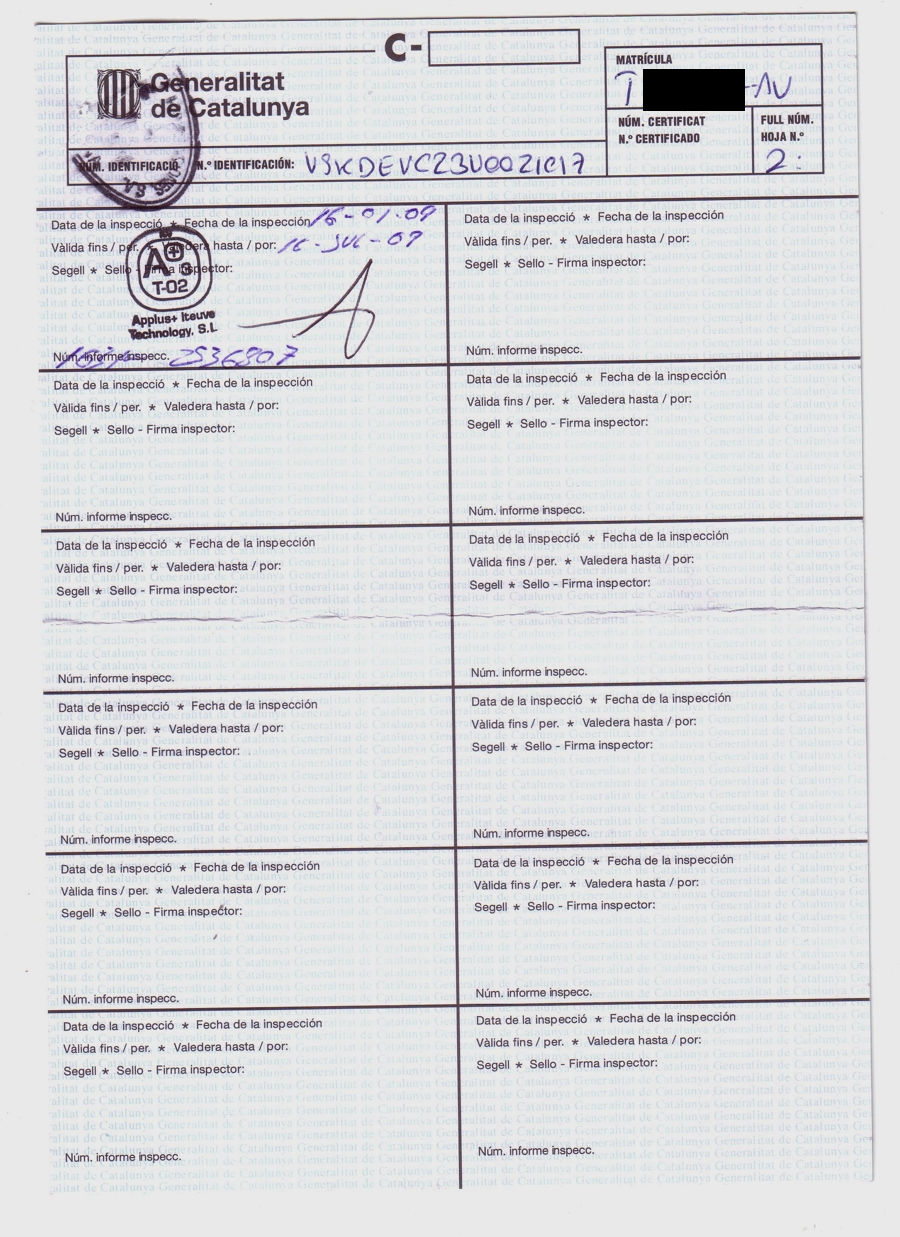 C-
Generalitat
de Catalunya
MATRÍCULA
T -AV
NÚM. CERTIFICAT
N.º CERTIFICADO
FULL NÚM.
HOJA N.º
2
NÚM. IDENTIFICACIÓ N.º IDENTIFICACIÓN: VSKDEVC23U0021017
Data de la inspecció * Fecha de la inspección 16-01-09
Vàlida fins / per. * Valedera hasta / por: 16-JUL-09
Segell * Sello - Firma inspector:
A+
T-02
Applus+ Iteuve
Technology, S.L
Núm. informe inspecc. 2536807
Data de la inspecció * Fecha de la inspección
Vàlida fins / per. * Valedera hasta / por:
Segell * Sello - Firma inspector:
Núm. informe inspecc.
Data de la inspecció * Fecha de la inspección
Vàlida fins / per. * Valedera hasta / por:
Segell * Sello - Firma inspector:
Núm. informe inspecc.
Data de la inspecció * Fecha de la inspección
Vàlida fins / per. * Valedera hasta / por:
Segell * Sello - Firma inspector:
Núm. informe inspecc.
Data de la inspecció * Fecha de la inspección
Vàlida fins / per. * Valedera hasta / por:
Segell * Sello - Firma inspector:
Núm. informe inspecc.
Data de la inspecció * Fecha de la inspección
Vàlida fins / per. * Valedera hasta / por:
Segell * Sello - Firma inspector:
Núm. informe inspecc.
Data de la inspecció * Fecha de la inspección
Vàlida fins / per. * Valedera hasta / por:
Segell * Sello - Firma inspector:
Núm. informe inspecc.
Data de la inspecció * Fecha de la inspección
Vàlida fins / per. * Valedera hasta / por:
Segell * Sello - Firma inspector:
Núm. informe inspecc.
Data de la inspecció * Fecha de la inspección
Vàlida fins / per. * Valedera hasta / por:
Segell * Sello - Firma inspector:
Núm. informe inspecc.
Data de la inspecció * Fecha de la inspección
Vàlida fins / per. * Valedera hasta / por:
Segell * Sello - Firma inspector:
Núm. informe inspecc.
Data de la inspecció * Fecha de la inspección
Vàlida fins / per. * Valedera hasta / por:
Segell * Sello - Firma inspector:
Núm. informe inspecc.
Data de la inspecció * Fecha de la inspección
Vàlida fins / per. * Valedera hasta / por:
Segell * Sello - Firma inspector:
Núm. informe inspecc.